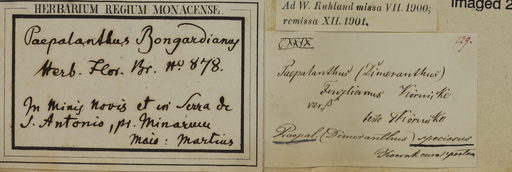 HERBARIUM REGIUM MONACENSE.
Paepalanthus Bongardianus
Herb. Flor. Br. No 878.
In Minis novis et in Serra de
S. Antonio, pr. Minarum
Maio: Martius
Ad W. Ruhland missa VII. 1900;
remissa XII. 1901.
Imaged 2
CXXIX
129.
Paepalanthus (Dimeranthus)
Fenzlianus Körnicke
var. β
teste Körnicke
Paepal. (Dimeranthus) speciosus
Koernicke